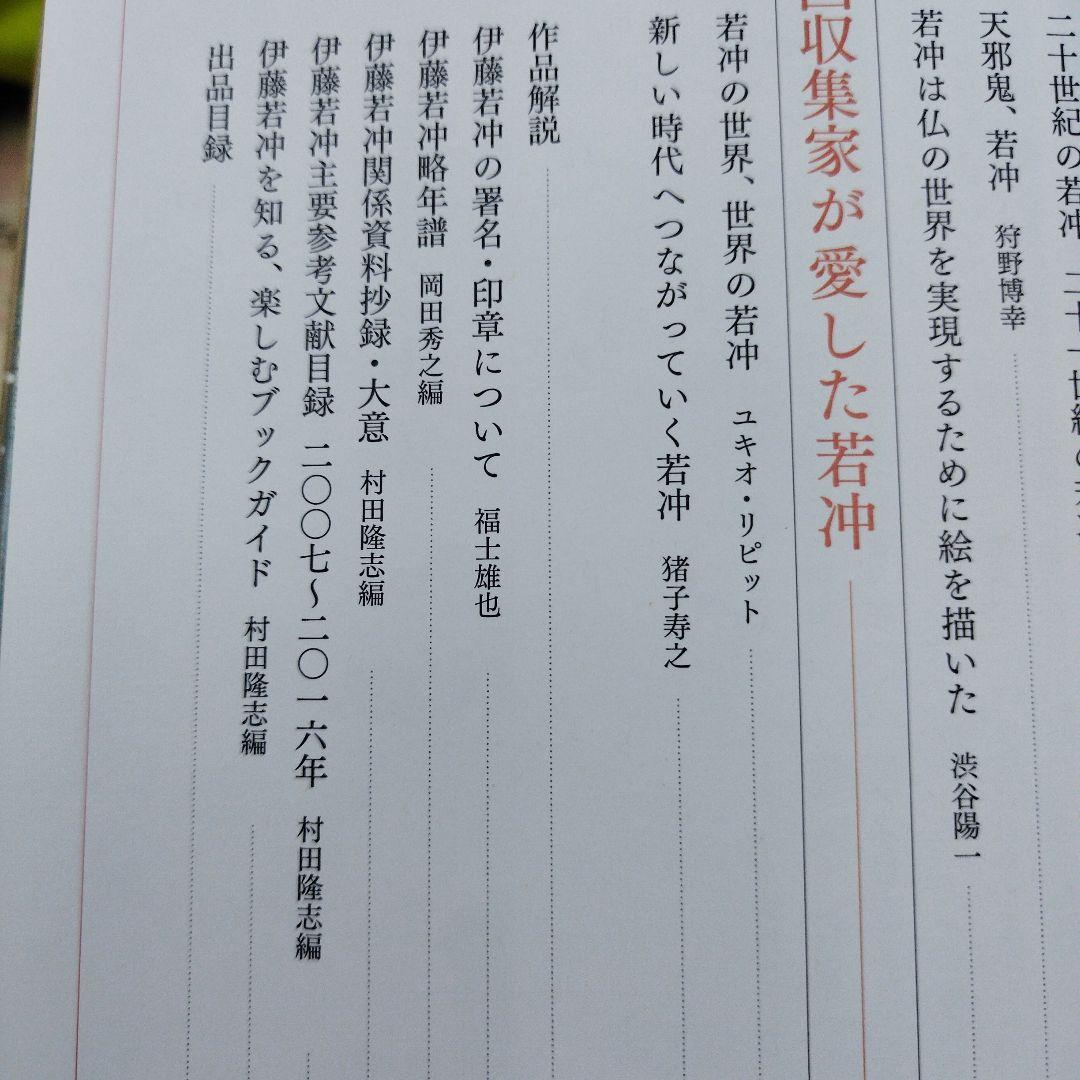 二十世紀の若冲、二十一世紀の
天邪鬼、若冲 狩野博幸
若冲は仏の世界を実現するために絵を描いた 渋谷陽一
収集家が愛した若冲
若冲の世界、世界の若冲 ユキオ・リピット
新しい時代へつながっていく若冲 猪子寿之
作品解説
伊藤若冲の署名・印章について 福士雄也
伊藤若冲略年譜 岡田秀之編
伊藤若冲関係資料抄録・大意 村田隆志編
伊藤若冲主要参考文献目録 二〇〇七〜二〇一六年 村田隆志編
伊藤若冲を知る、楽しむブックガイド 村田隆志編
出品目録